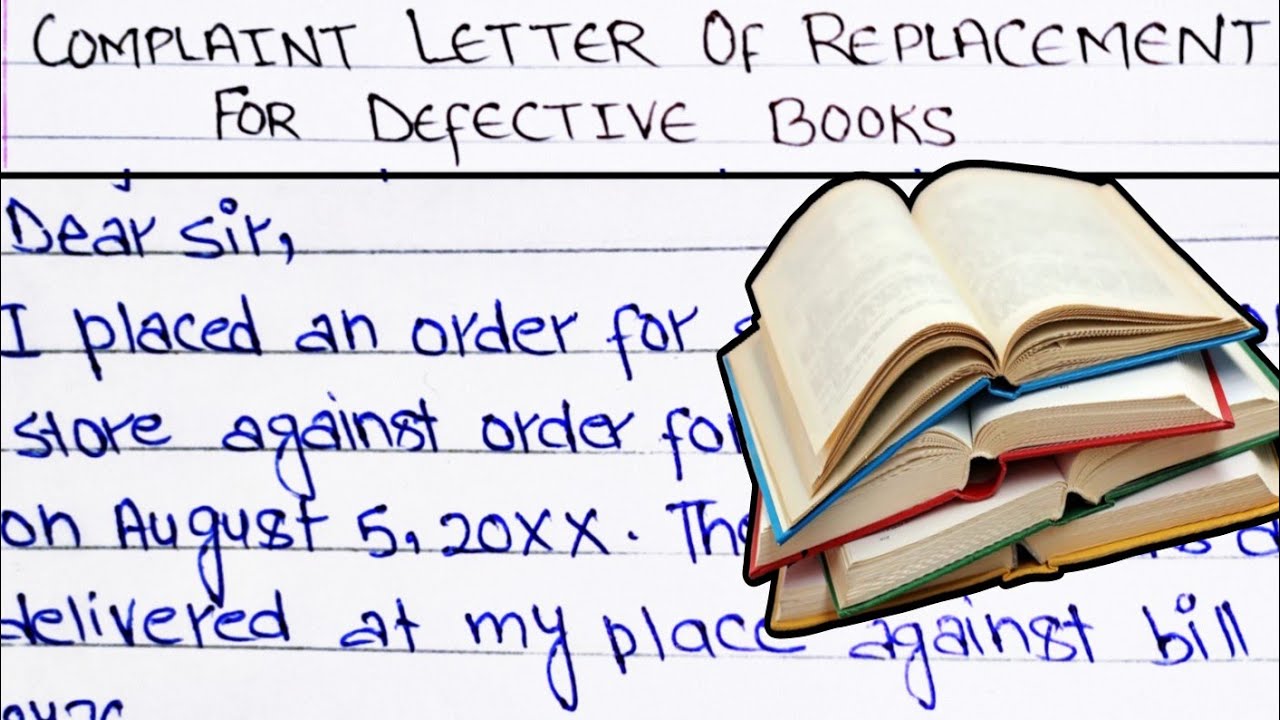 COMPLAINT LETTER OF REPLACEMENT
FOR DEFECTIVE BOOKS
Dear sir,
I placed an order for
store against order
on August 5, 20XX.
delivered at my place against bill